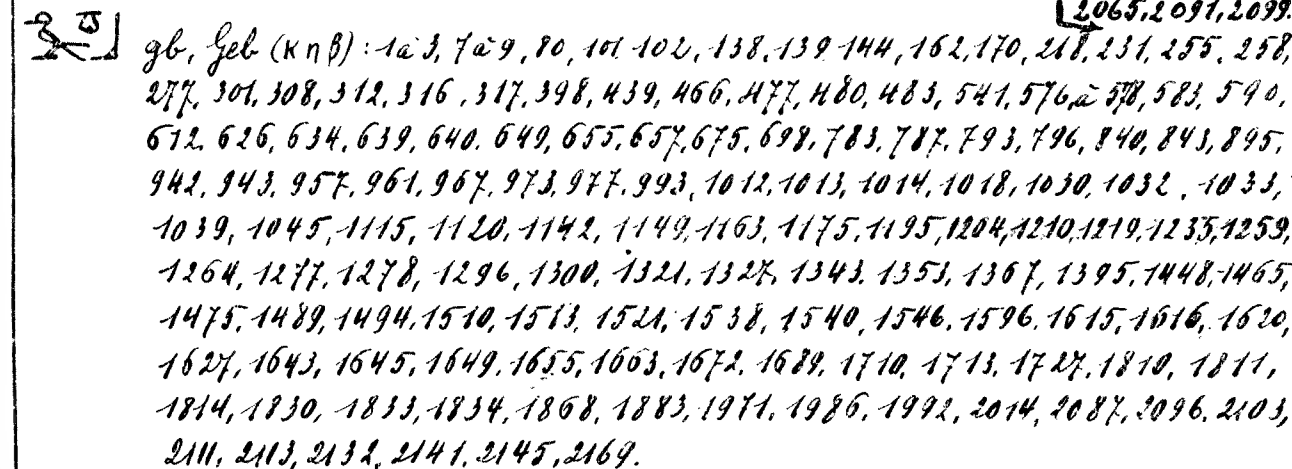 2065, 2091, 2099.
gb, Geb (κηβ): 1 à 3, 7 à 9, 80, 101-102, 138, 139-144, 162, 170, 218, 231, 255, 258,
277, 301, 308, 312, 316, 317, 398, 439, 466, 477, 480, 483, 541, 576, à 578, 583, 590,
612, 626, 634, 639, 640, 649, 655, 657, 675, 698, 783, 787, 793, 796, 840, 843, 895,
942, 943, 957, 961, 967, 973, 977, 993, 1012, 1013, 1014, 1018, 1030, 1032, 1033,
1039, 1045, 1115, 1120, 1142, 1149, 1163, 1175, 1195, 1204, 1210, 1219, 1235, 1259,
1264, 1277, 1278, 1296, 1300, 1321, 1327, 1343, 1353, 1367, 1395, 1448, 1465,
1475, 1489, 1494, 1510, 1513, 1521, 1538, 1540, 1546, 1596, 1615, 1616, 1620,
1627, 1643, 1645, 1649, 1655, 1663, 1672, 1689, 1710, 1713, 1727, 1810, 1811,
1814, 1830, 1833, 1834, 1868, 1883, 1971, 1986, 1992, 2014, 2087, 2096, 2103,
2111, 2113, 2132, 2141, 2145, 2169.